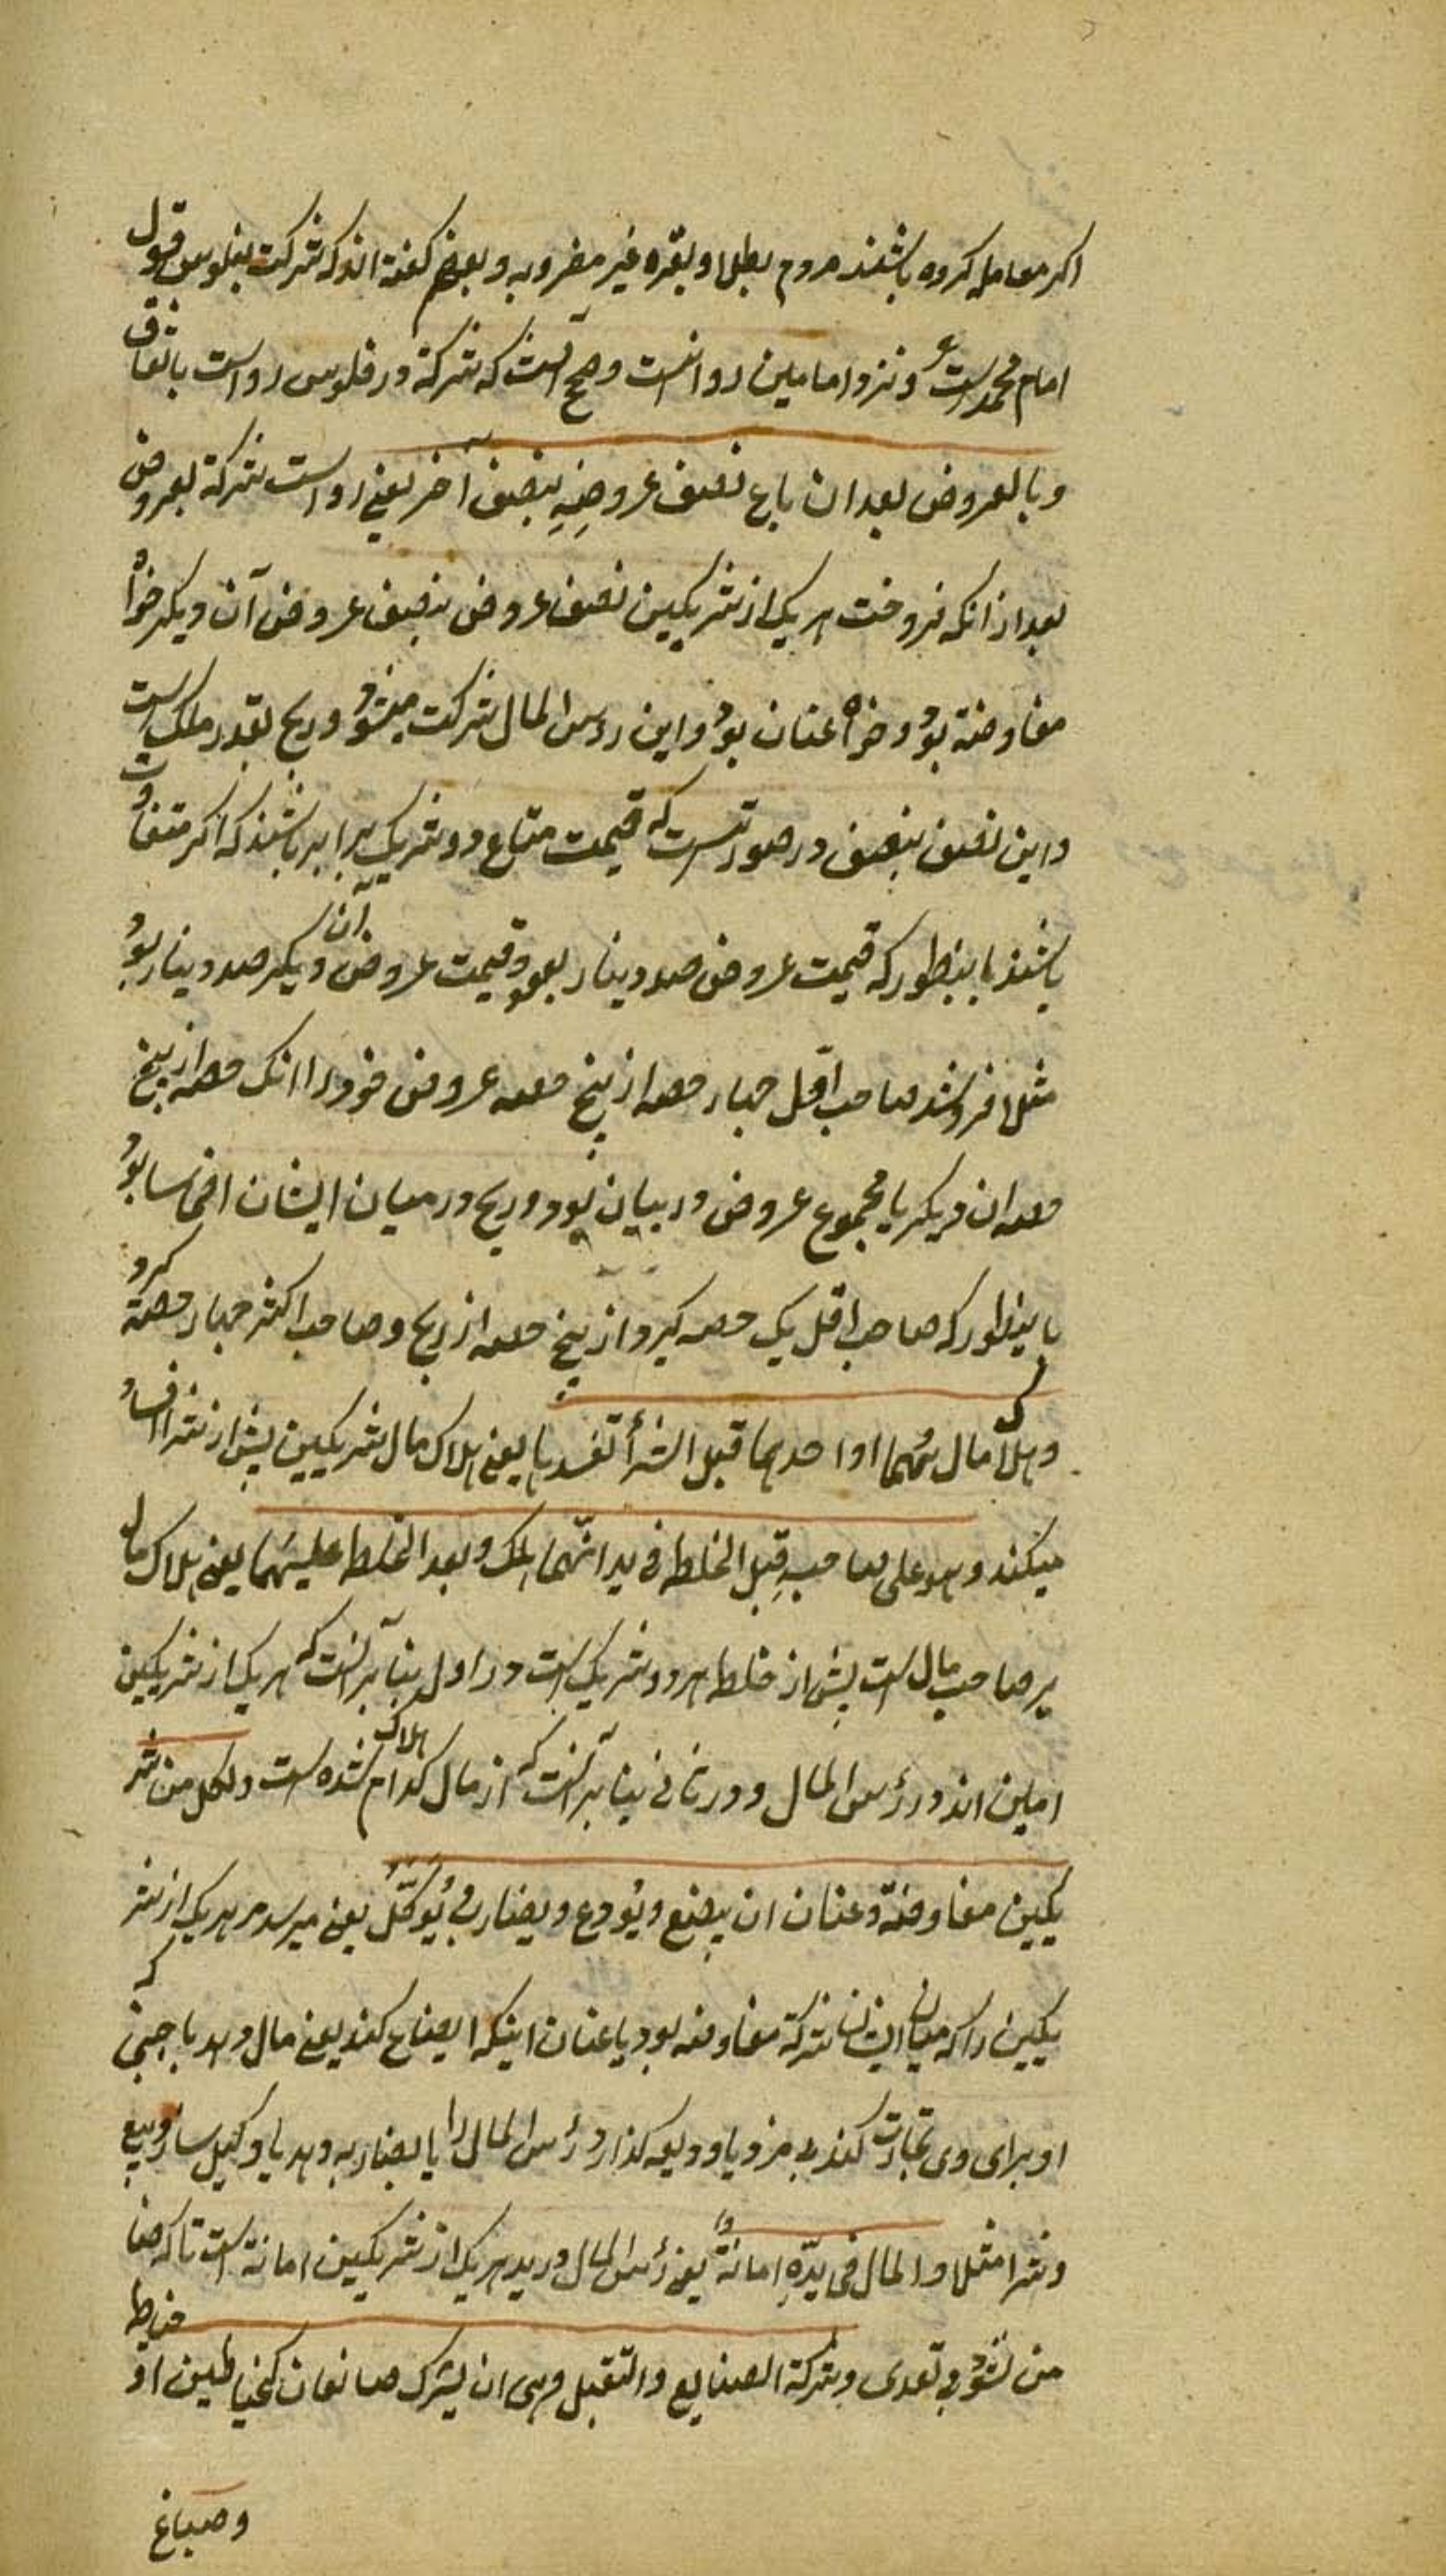 اکر معامله کرده باشند مردم بطلا و بنقره غیر مضروبه و بعضی کفته اند که شرکت بفلوس قول
امام محمد است و نزد امامین روا نیست و صحیح آنست که شرکة در فلوس رواست باتفاق
و بالعروض بعد ان باع نصف عروضه بنصف آخر یعنی رواست شرکة بعروض
بعد از انکه فروخت هر یک از شریکین نصف عروض بنصف عروض آن دیکر خواه
مفاوضة بود و خواه عنان بود و این رؤس المال شرکت میشود و ربح بقدر ملک است
و این نصف بنصف در صورتیست که قیمت متاع دو شریک برابر باشند که اکر متفاوت
باشند باینطور که قیمت عروض صد دینار بود و قیمت عروض آن دیکر صد دینار بود
مثلا فروشد صاحب اقل چهار حصه از پنج حصه عروض خود را انک حصه از پنج
حصه ان دیکر یا مجموع عروض در بیان بود و ربح در میان ایشان اخماسا بود
باینطور که صاحب اقل یک حصه کیرد از پنج حصه از ربح و صاحب اکثر چهار حصه کیرد
و هلاک مال یهما او احدهما قبل الشرأ تفسدها یعنی هلاک مال شریکین پیش از شرا افساد
میکند و هو علی صاحبه قبل الخلط فی ید ایهما هلک و بعد الخلط علیهما یعنی هلاک مال
بر صاحب مال است پیش از خلط هر دو شریک است در اول بنا بر آنست که هر یک از شریکین
امین اند در رؤس المال و در ثانی بنا بر آنست که از مال کدام هلاک شده است و لکل من شر
یکین مفاوضة و عنان ان یبضع و یودع و یضارب و یوکل یعنی میرسد مر هر یک از شر
یکین را که میان ایشان شرکة مفاوضه بود یا عنان اینکه ابضاع کند یعنی مال دهد باجنبی که
او برای وی تجارت کند بی مزد یا ودیعه کذارد رؤس المال را یا بمضاربه دهد یا وکیل سازد و ببیع
و شرا مثلا و المال فی یده امانة یعنی رؤس المال در ید هر یک از شریکین امانة است تا که ضا
من نشود بی تعدی و شرکة الصنایع و التقبل و هی ان یشرک صانعان کخیاطین او خیاط
و صباغ